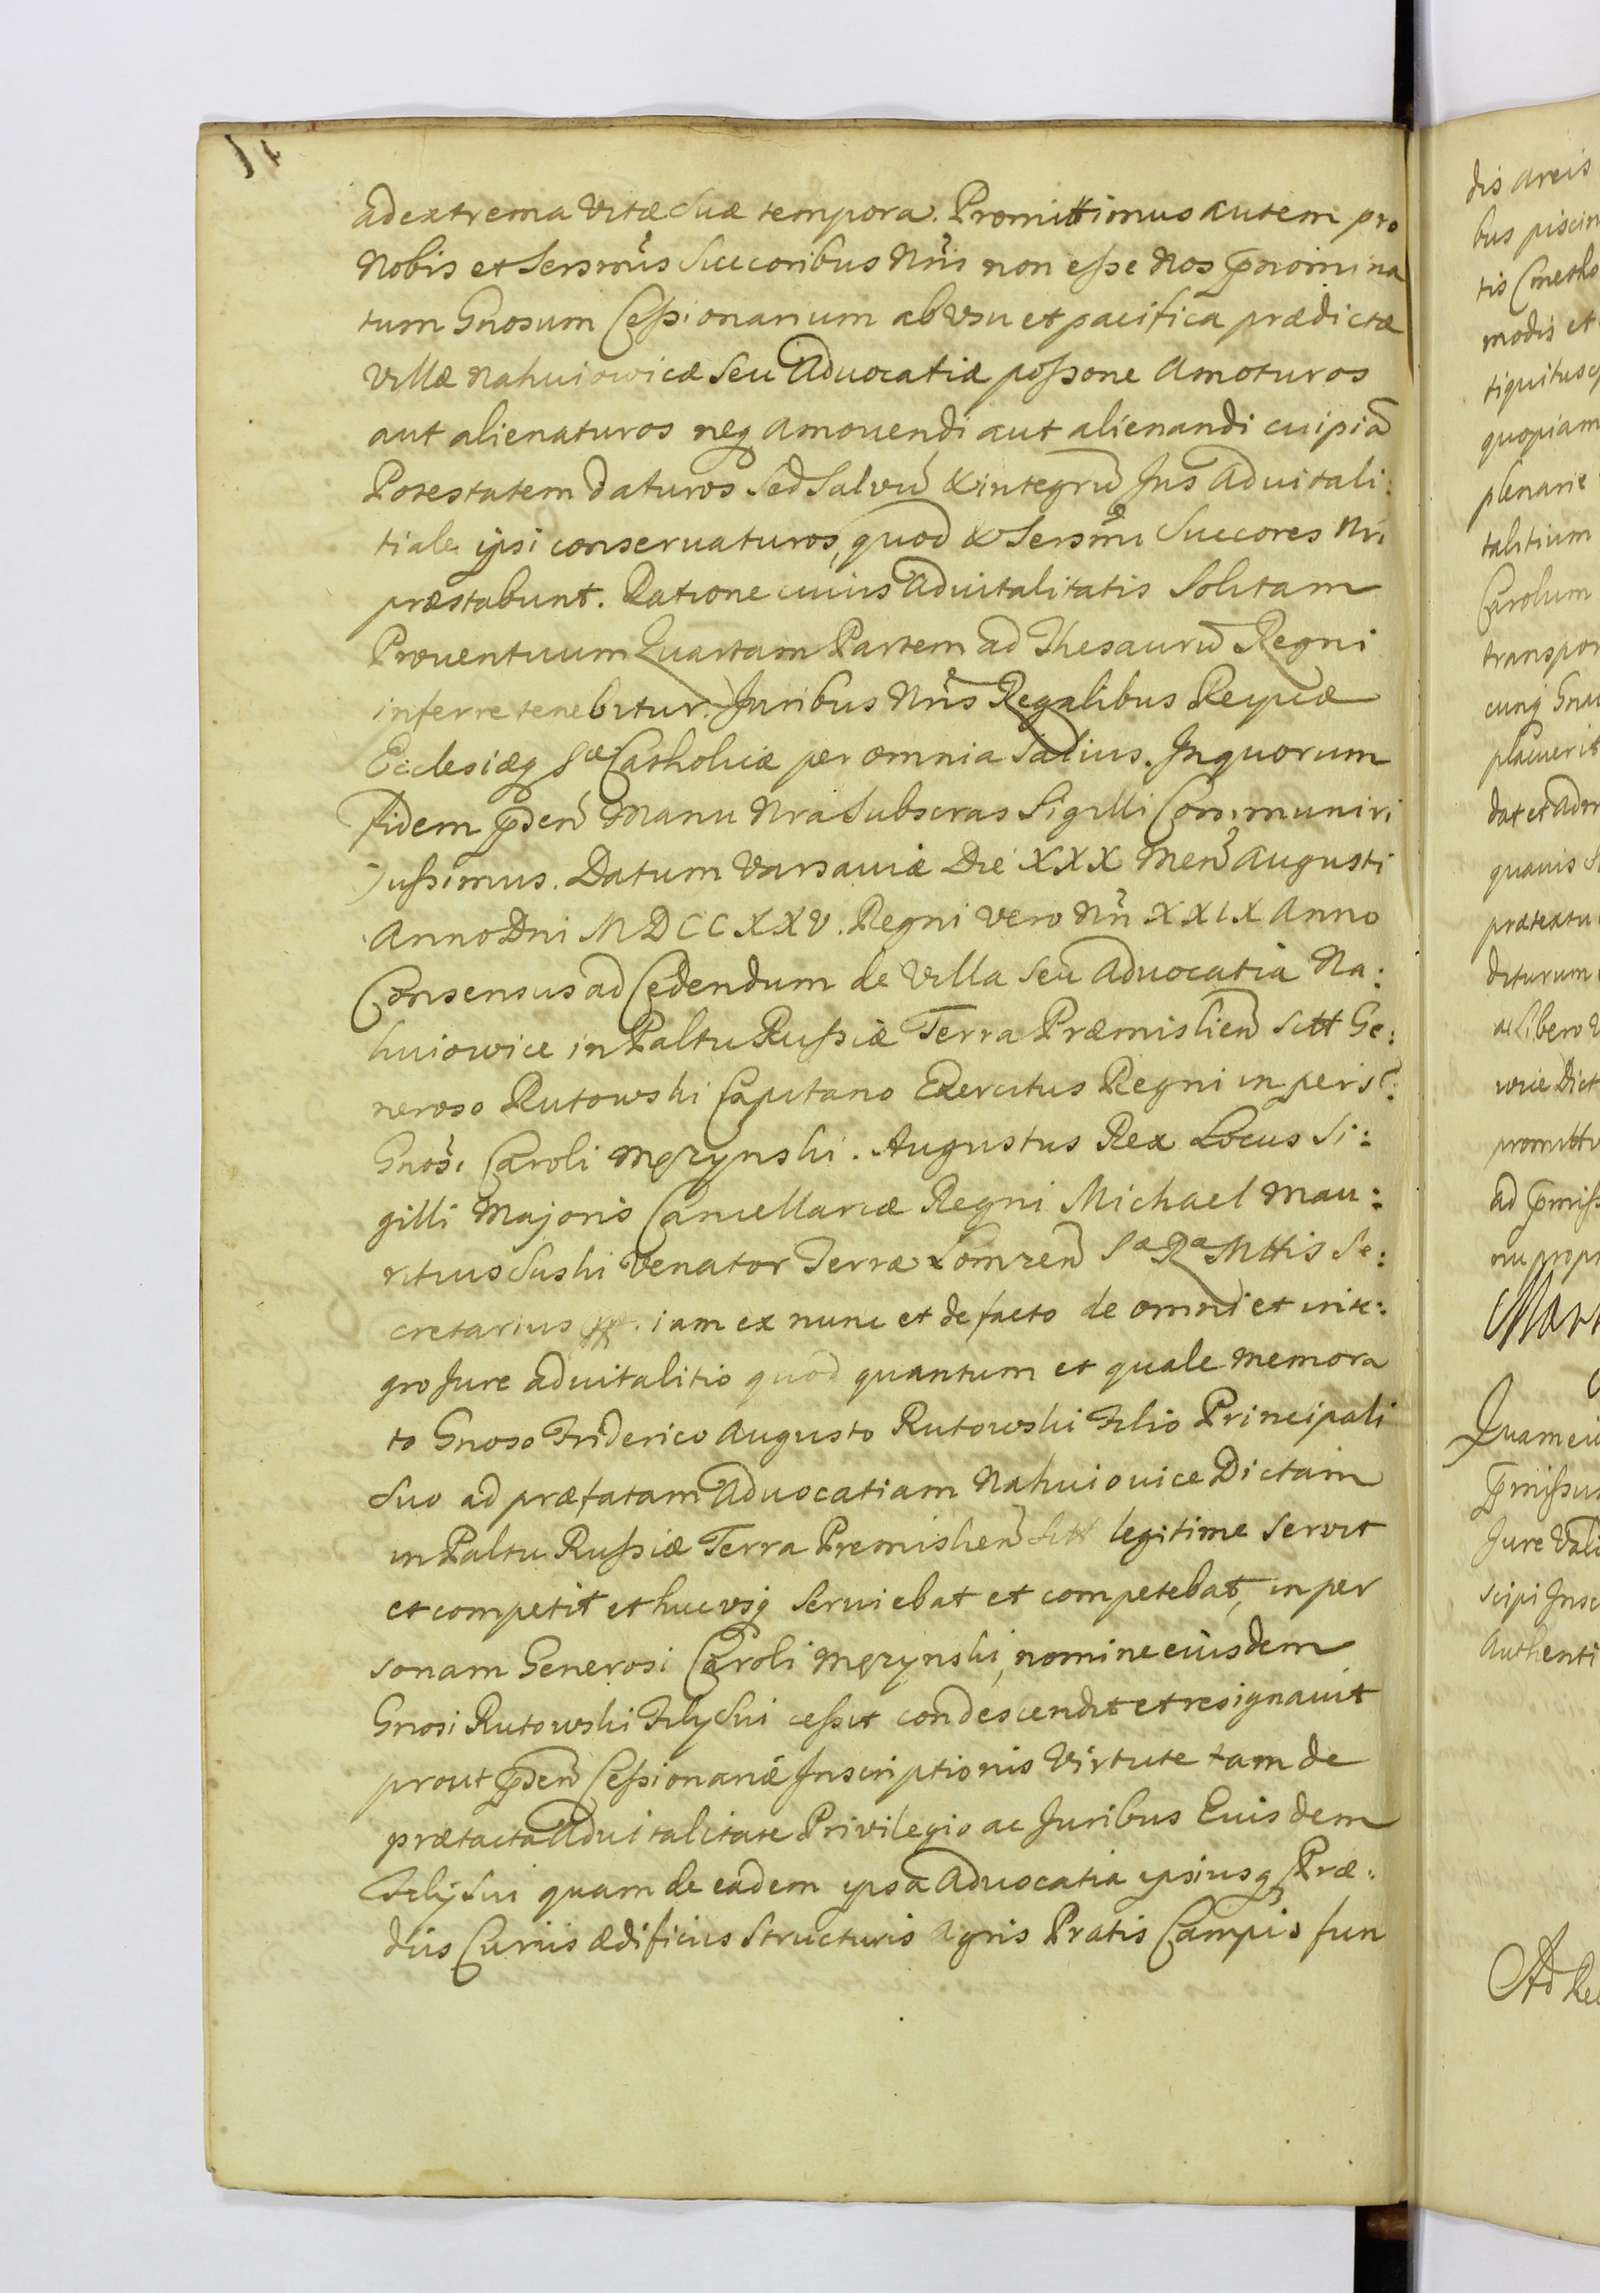 ad extrema Vitæ Suæ tempora. Promittimus autem pro
Nobis et Serśmis Succoribus Nris non eſse Nos pnomina
tum Gnosum Ceſsionarium ab Vsu et pacifica prædictæ
Villæ Nahuiowicæ Seu Advocatiæ poſsone Amoturos
aut alienaturos neq amouendi aut alienandi cuipiã
Potestatem daturos Sed Salvũ & integrũ Jus Aduitali:
tiale ipsi conseruaturos, quod & Sersmi Succores Nri
præstabunt. Ratione cuius Aduitalitatis Solutam
Prouentuum Quartam Partem ad Thesaurũ Regni
inferre tenebitur. Juribus Nris Regalibus Reipcæ
Ecclesiæq Sæ Catholicæ per omnia Salius. In quorum
fidem pden Manu Nra Subscras Sigilli Communiri
Juſsimus. Datum Varsauiæ Die XXX Men Augusti
Anno Dni MDCCXXV. Regni Vero Nri XXIX Anno
Consensus ad Cedendum de Villa Seu Advocatia Na:
huiowice in Paltu Ruſsiæ Terra Præmislien Sitt Ge:
neroso Rutowski Capitano Exercitus Regni in pers:
Gnosi Caroli Mężynski. Augustus Rex Locus Si:
gilli Majoris Cancellariæ Regni Michael Mau:
ritius Suski Venator Terræ Łomzen Sa Ra Mttis Se:
cretarius mp. iam ex nunc et de facto de omni et inte:
gro Jure aduitalitio quod quantum et quale memora
to Gnoso Friderico Augusto Rutowski Filio Principali
Suo ad præfatam Aduocatiam Nahuiouice Dictam
in Paltu Ruſsiæ Terra Premislien Sitt legitime Servit
et competit et hucusq Seruiebat et competebat, in per
sonam Generosi Caroli Mężynski, nomine eiusdem
Gnosi Rutowski Filij Sui ceſsit condescendit et resignauit
prout pden Ceſsionariæ Inscriptionis Virtute tam de
prætacta Aduitalitate Privilegio ac Juribus Euisdem
Filij Sui quam de eadem ipsa Aduocatia ipsiusq Præ:
diis Curiis ædificiis Structuris Agris Pratis Campis fun
dis areis
bus piscin
tis Cmetho
modis et
tiquitus
quopiam
plenarie
talitium
Carolum
transpor
cunq Gnu
placuerit
dat et Adm
quauis
prætextu
diturum
ac libero
Dict
promitti
ad pmiſs
propr
Quam
pmiſsus
Jure Vali
scipi Insc
Authenti
Ad